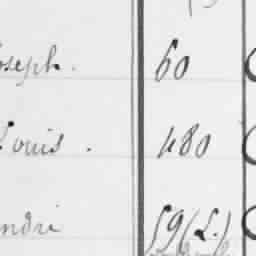 oseph. 60
Louis. 480
ndré 59 (L.)